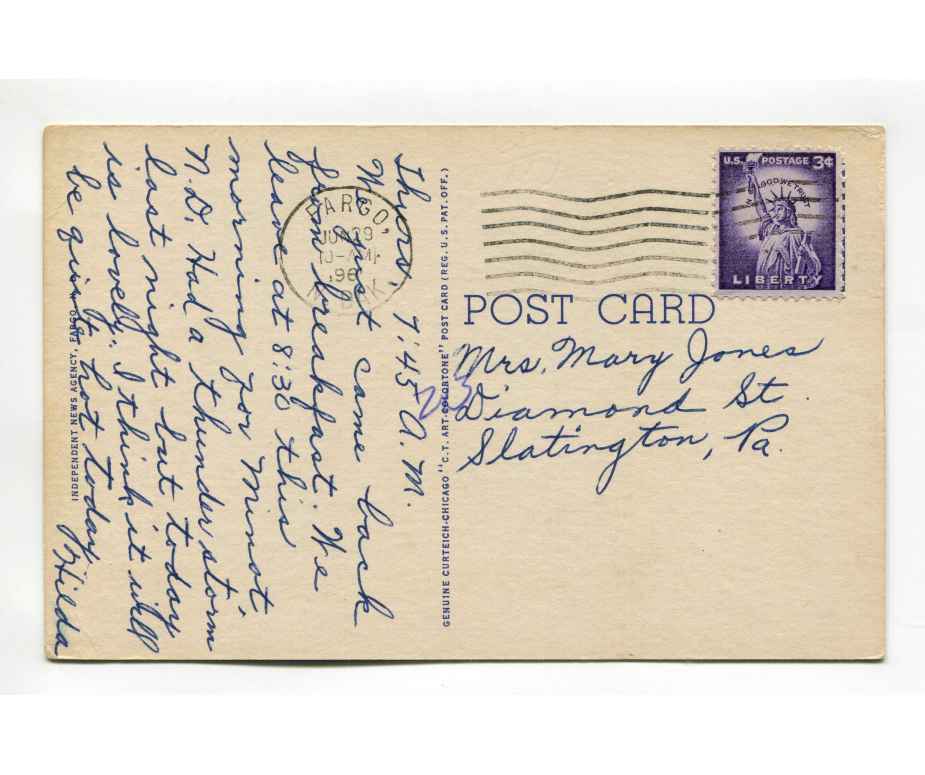 Thurs. 7:45 A.M.
We just came back
from breakfast. We
leave at 8:30 this
morning for Minot
N.D. Had a thunder storm
last night but today
is lovely. I think it will
be quite hot today.
Hilda
INDEPENDENT NEWS AGENCY, FARGO
FARGO,
JUN 29
10-AM
196
N. DAK
GENUINE CURTEICH-CHICAGO "C.T. ART-COLORTONE" POST CARD (REG. U.S. PAT. OFF.)
U.S. POSTAGE 3¢
IN GOD WE TRUST
LIBERTY
POST CARD
Mrs. Mary Jones
Diamond St.
Slatington, Pa.